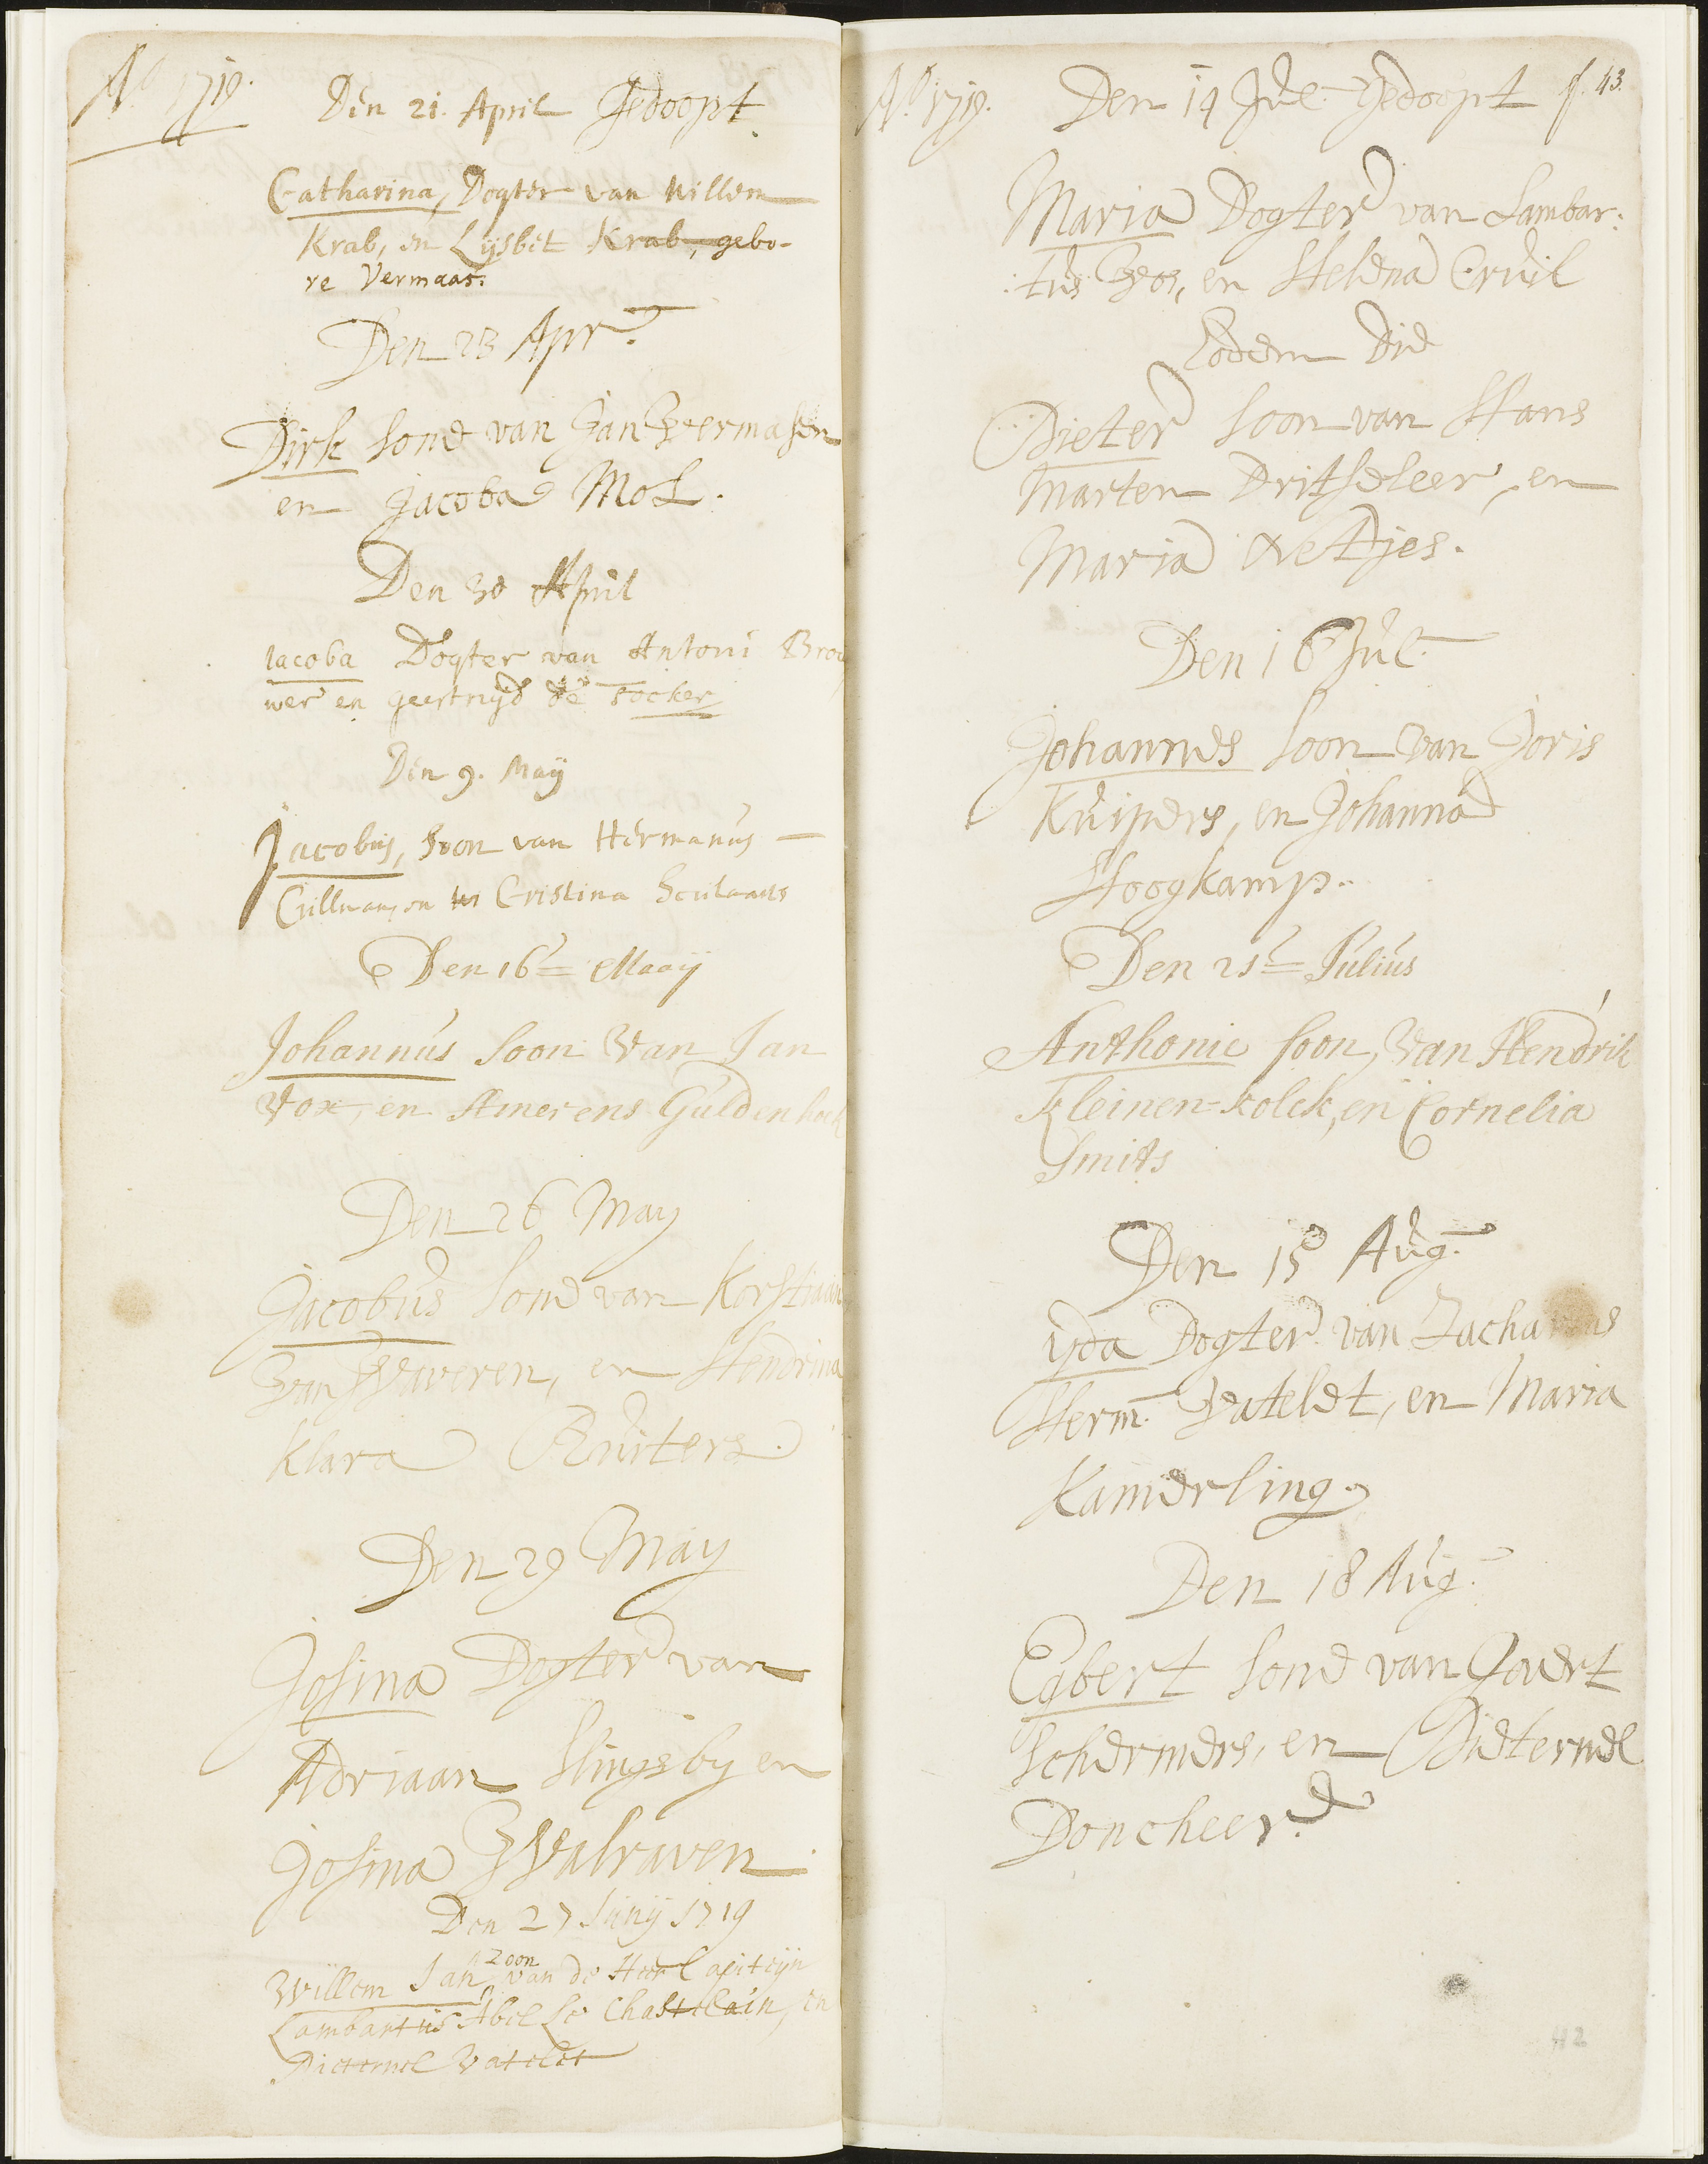 Aº 1719.
Den 21. April Gedoopt
Catharina, Dogter van Willem
Krab, en Lijsbet Krab, gebo-
re Vermaas.
Den 23 Apr.
Dirk Sone van Jan Veermasen
en Jacoba Mol.
Den 30 April
Jacoba Dogter van Antoni Brou
wer en geertruijd de Tocker
Den 9. Maij
Jacobus, Soon van Hermanus
en Cristina
Den 16e Maaij
Johannus Soon van Jan
Vox, en Amerens Guldenhoek
Den 26 May
Jacobus Sone van Korstiaan
van Waveren, en Hendrina
Klara Ruiters.
Den 29 May
Josina Dogter van
Adriaan Slingsby en
Josina Walraven.
Den 27 Junij 1719
Willem Jan Zoon van de Heer Capiteijn
Lambartus Abel Le Chastelain, en
Dieternel Vateldt
Aº 1719. Den 14 Jul. Gedoopt f. 43.
Maria Dogter van Lambar:
:tus Vos, en Helena Cruil
Eodem Die
Pieter Soon van Hans
Marten Dritseleer, en
Maria Netjes.
Den 16 Jul.
Johannes Soon van Joris
Kuipers, en Johanna
Hoogkamp.
Den 21e Julius
Anthonie soon, van Hendrik
Kleinen-kolck, en Cornelia
Smits
Den 15 Aug.
Yda Dogter van Zacharias
Herm. Vateldt, en Maria
Kamerling.
Den 18 Aug.
Egbert Sone van Govert
Schermers, en Pieternel
Doncheer.
42